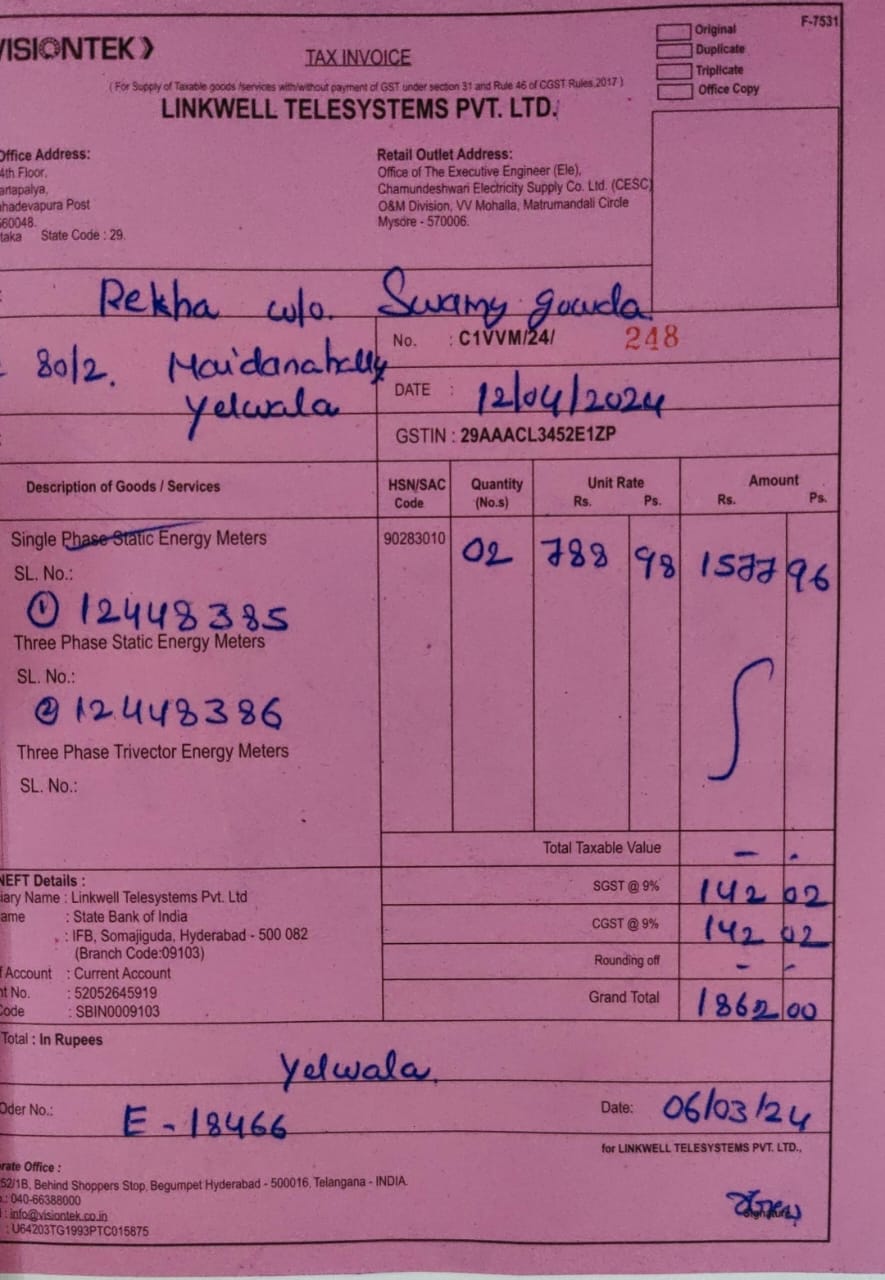 VISIONTEK
F-7531
TAX INVOICE
Original
Duplicate
Triplicate
Office Copy
( For Supply of Taxable goods /services with/without payment of GST under section 31 and Rule 46 of CGST Rules,2017 )
LINKWELL TELESYSTEMS PVT. LTD.
Office Address:
4th Floor,
hadevapura Post
560048.
taka State Code : 29.
Retail Outlet Address:
Office of The Executive Engineer (Ele),
Chamundeshwari Electricity Supply Co. Ltd. (CESC)
O&M Division, VV Mohalla, Matrumandali Circle
Mysore - 570006.
Rekha w/o. Swamy gowda
No. : C1VVM/24/ 248
80/2. Maidanahally
Yelwala
DATE : 12/04/2024
GSTIN : 29AAACL3452E1ZP
Description of Goods / Services HSN/SAC Code Quantity (No.s) Unit Rate Rs. Ps. Amount Rs. Ps.
Single Phase Static Energy Meters 90283010 02 788 98 1577 96
SL. No.:
① 12448385
Three Phase Static Energy Meters
SL. No.:
② 12448386
Three Phase Trivector Energy Meters
SL. No.:
Total Taxable Value - .
SGST @ 9% 142 02
CGST @ 9% 142 02
Rounding off - -
Grand Total 1862 00
NEFT Details :
iary Name : Linkwell Telesystems Pvt. Ltd
ame : State Bank of India
: IFB, Somajiguda, Hyderabad - 500 082
(Branch Code:09103)
f Account : Current Account
nt No. : 52052645919
Code : SBIN0009103
Total : In Rupees
Yelwala.
Oder No.: E - 18466
Date: 06/03/24
for LINKWELL TELESYSTEMS PVT. LTD.,
rate Office :
52/1B, Behind Shoppers Stop, Begumpet Hyderabad - 500016, Telangana - INDIA.
.: 040-66388000
: info@visiontek.co.in
: U64203TG1993PTC015875
Signature